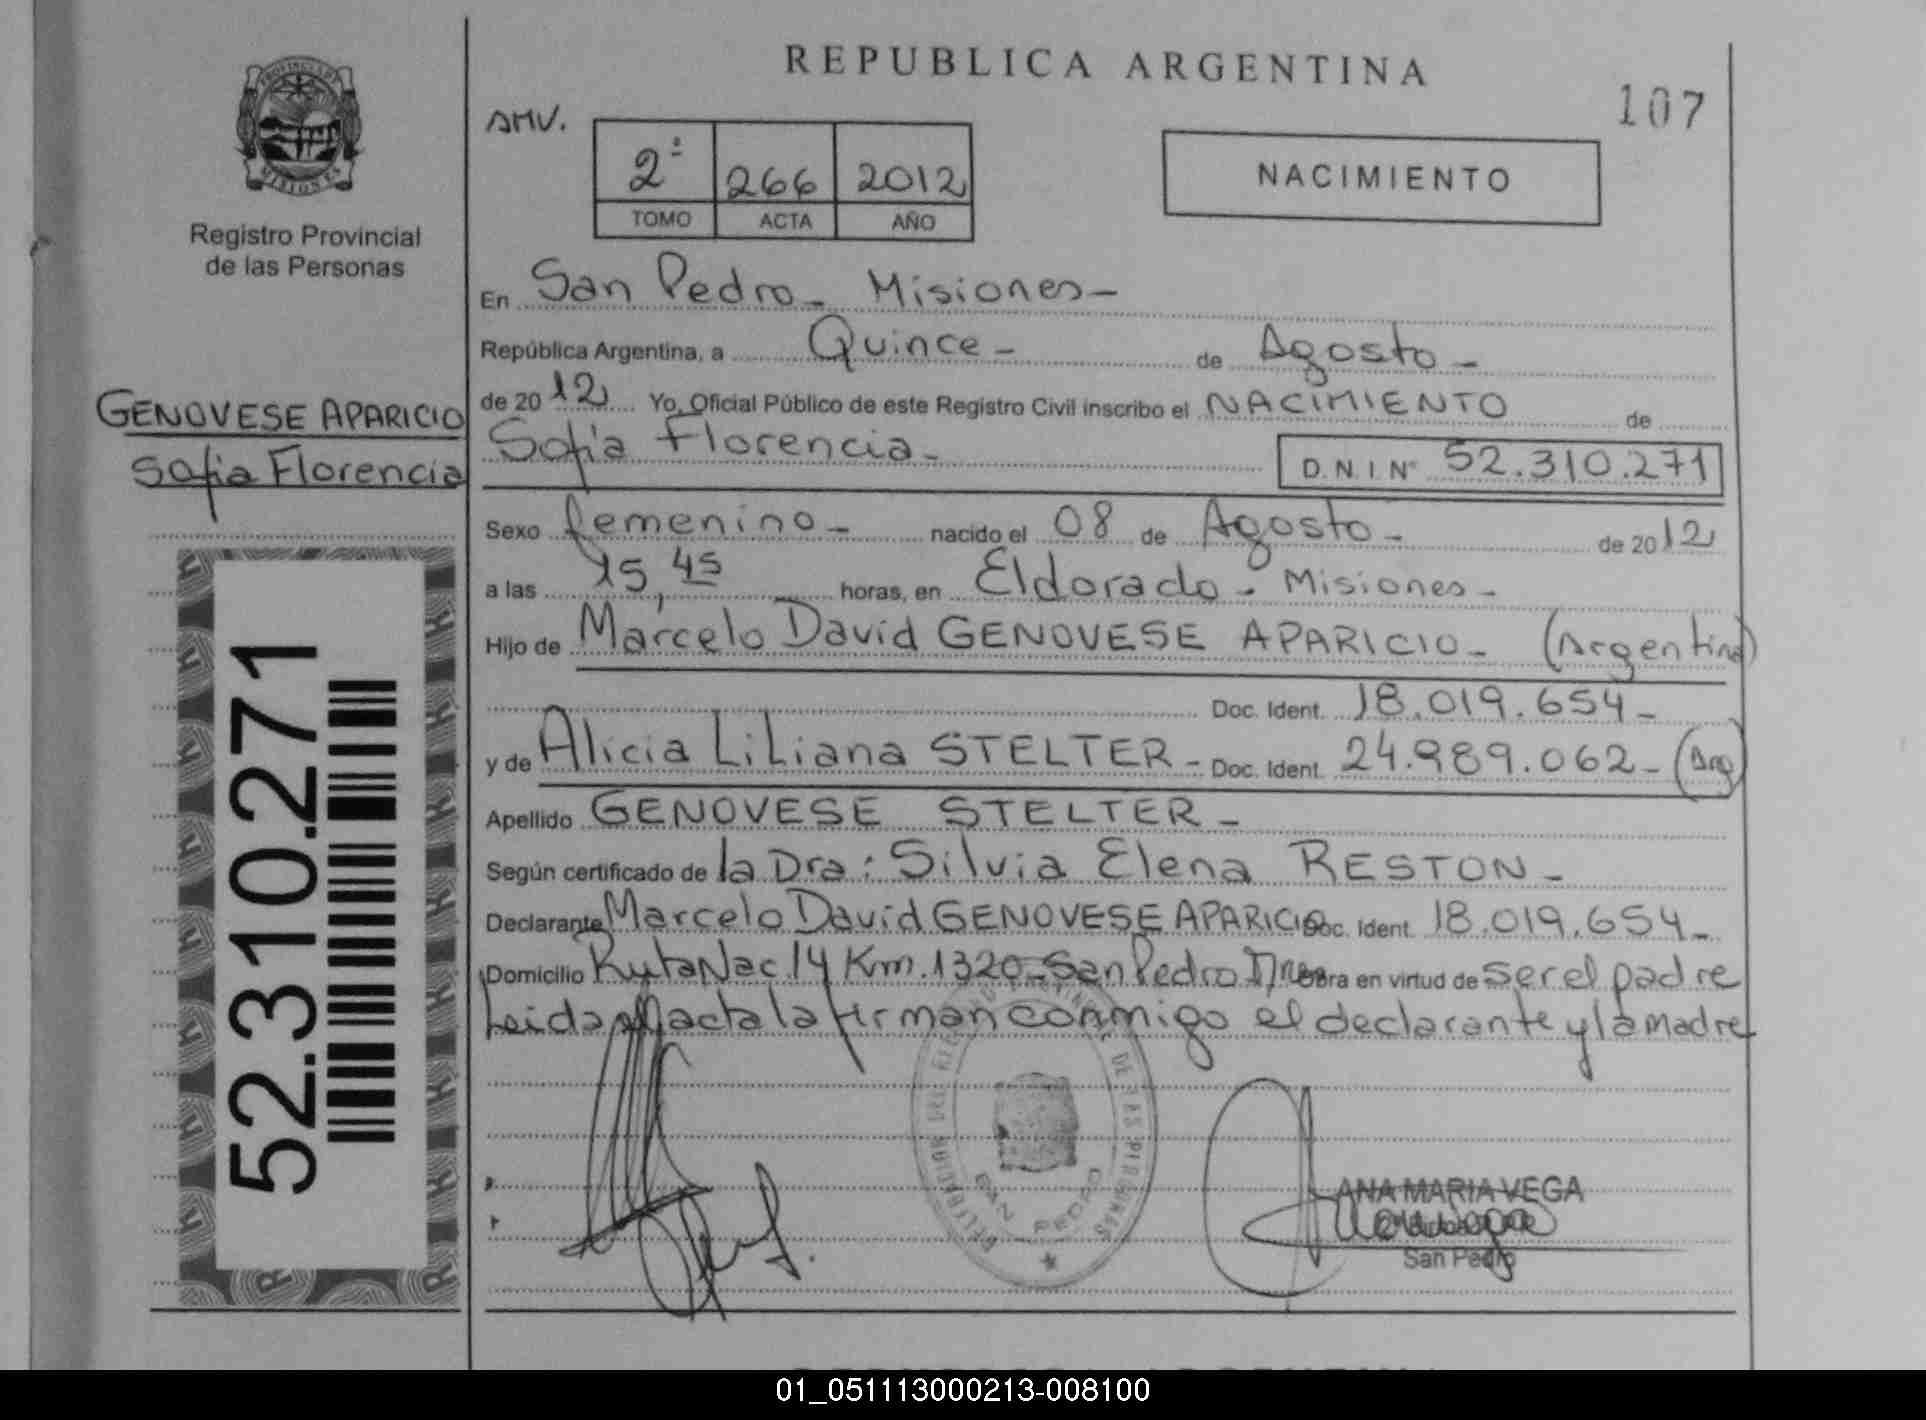 REPUBLICA ARGENTINA
107
AMV.
2º 266 2012
TOMO ACTA AÑO
NACIMIENTO
PROVINCIA DE MISIONES
Registro Provincial
de las Personas
GENOVESE APARICIO
Sofia Florencia
52.310.271
En San Pedro - Misiones -
República Argentina, a Quince - de Agosto -
de 2012 Yo, Oficial Público de este Registro Civil inscribo el NACIMIENTO de
Sofia Florencia - D.N.I. Nº 52.310.271
Sexo femenino - nacido el 08 de Agosto - de 2012
a las 15,45 horas, en Eldorado - Misiones -
Hijo de Marcelo David GENOVESE APARICIO - (Argentina)
Doc. Ident. 18.019.654 -
y de Alicia Liliana STELTER - Doc. Ident. 24.989.062 - (Arg)
Apellido GENOVESE STELTER -
Según certificado de la Dra: Silvia Elena RESTON -
Declarante Marcelo David GENOVESE APARICIO Doc. Ident. 18.019.654 -
Domicilio Ruta Nac. 14 Km. 1320 - San Pedro Mnes Obra en virtud de ser el padre
Leida el acta la firman conmigo el declarante y la madre
DELEGACION DEL REGISTRO PROVINCIAL DE LAS PERSONAS
SAN PEDRO
ANA MARIA VEGA
San Pedro
01_051113000213-008100